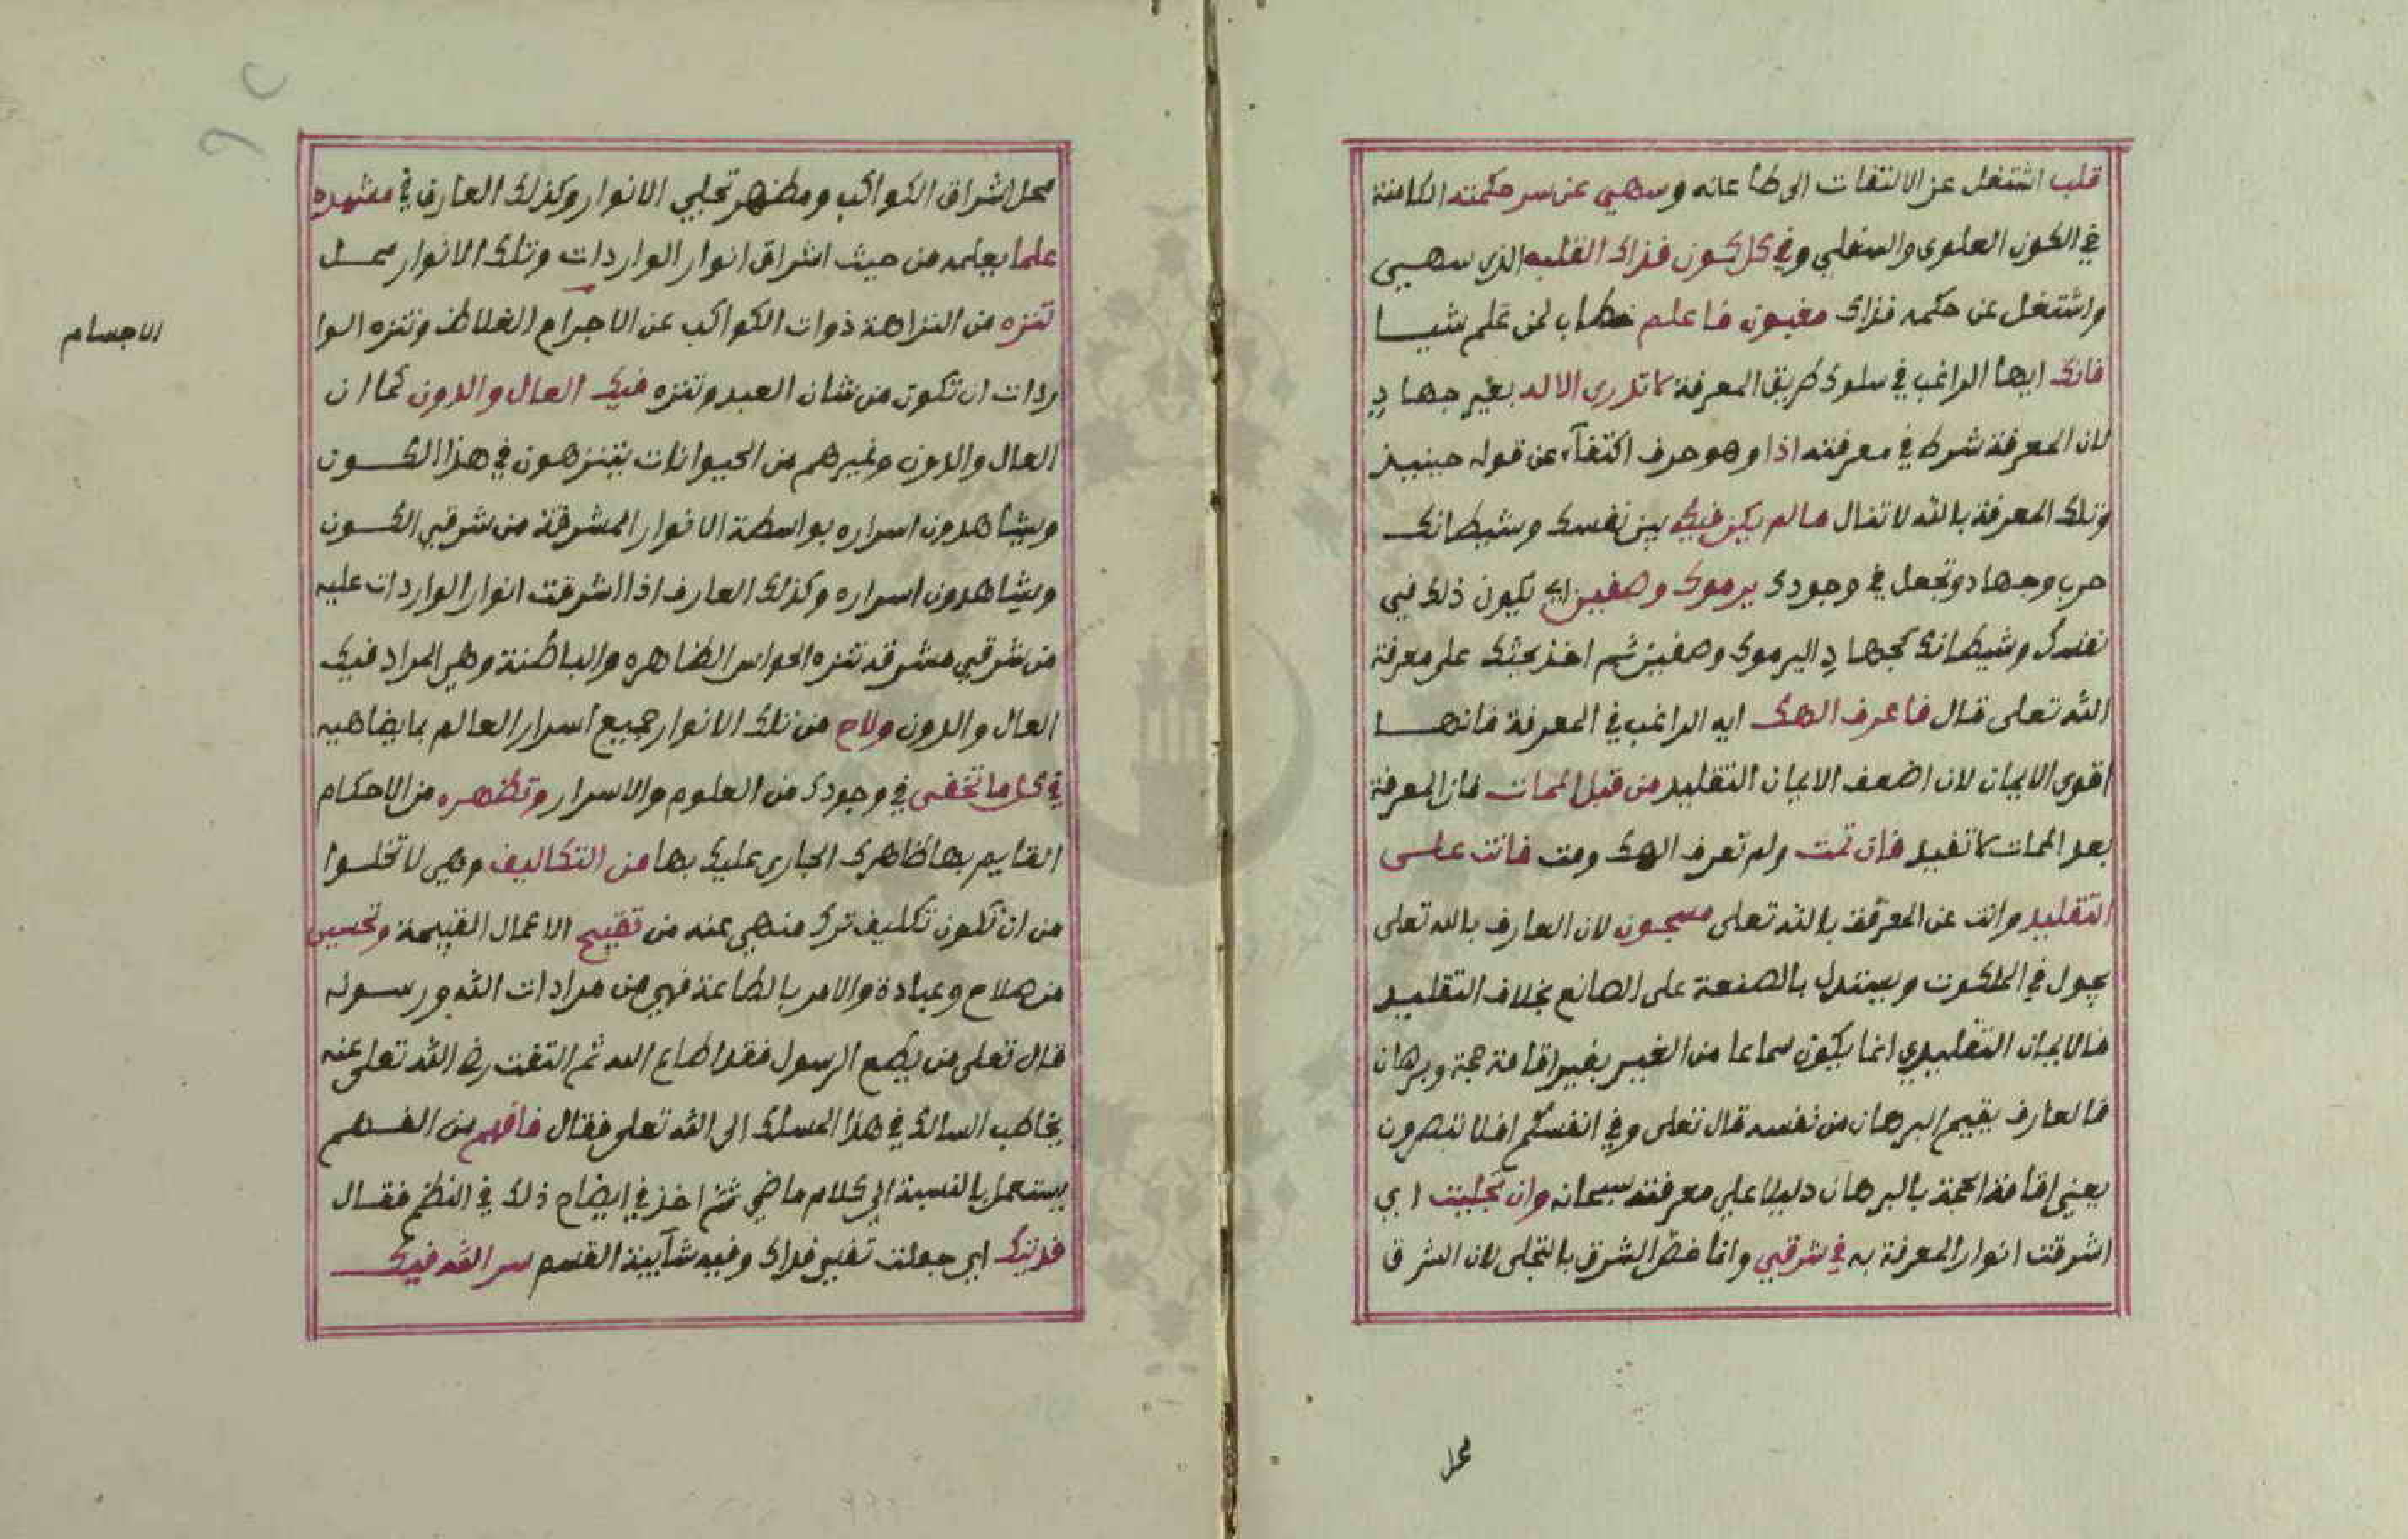 قلب اشتغل عن الالتفات الى طاعاته وسهى عن سر حكمته الكامنة
في الكون العلوى والسفلي وفي كل كون فذاك القلب الذى سهيى
واشتغل عن حكمه فذاك مغبون فاعلم خطاب لمن علم شيا
فانك ايها الراغب في سلوك طريق المعرفة لا تدرى الاله بغير جهادٍ
لان المعرفة شرط في معرفته اذا وهو حرف اكتفآء عن قوله حينيذ
وتلك المعرفة بالله لا تنال مالم يكن فيك بين نفسك وشيطانك
حرب وجهاد وتجعل في وجودك يرموك وصفين اى يكون ذلك في
نفسك وشيطانك كجهادِ اليرموك وصفين ثم اخذ يحثك على معرفة
الله تعلى قال فاعرف الهك ايه الراغب في المعرفة فانها
اقوى الايمان لان اضعف الايمان التقليد من قبل الممات فان المعرفة
بعد الممات لا تفيد فان تمت ولم تعرف الهك ومت فانت على
التقليد وانت عن المعرفة بالله تعلى مسجون لان العارف بالله تعلى
يجول في الملكوت ويستدل بالصنعة على الصانع بخلاف التقليد
فالايمان التقليدي انما يكون سماعا من الغير بغير اقامة حجة وبرهان
فالعارف يقيم البرهان من نفسه قال تعلى وفي انفسكم افلا تبصرون
يعني اقامة الحجة بالبرهان دليلا على معرفته سبحانه وان تجليت اى
اشرقت انوار المعرفة به في شرقي وانما خص الشرق بالتجلى لان الشرق
محل
محل اشراق الكواكب ومظهر تجلي الانوار وكذلك العارف في مشهده
علما يعلمه من حيث اشراق انوار الواردات وتلك الانوار محل
تنزه من النزاهة ذوات الكواكب عن الاجرام الغلاظ وتنزه الوا
الاجسام
ردات ان تكون من شان العبد وتنزه فيك العال والدون كما ان
العال والدون وغيرهم من الحيوانات يتنزهون في هذا الكون
ويشاهدون اسراره بواسطة الانوار المشرقة من شرقي الكون
ويشاهدون اسراره وكذلك العارف اذا اشرقت انوار الواردات عليه
من شرقي مشرقه تنزه الحواس الظاهره والباطنة وهي المراد فيك
العال والدون ولاح من تلك الانوار جميع اسرار العالم بما يضاهيه
في كل ما تخفى في وجودك من العلوم والاسرار وتظهره من الاحكام
القايم بها ظاهرك الجارى عليك بها من التكاليف وهي لا تخلوا
من ان تكون تكليف ترك منهى عنه من تقبيح الاعمال القبيحة وتحسين
من صلاح وعبادة والامر بالطاعة فهي من مرادات الله ورسوله
قال تعلى من يطع الرسول فقد اطاع الله ثم التفت رضى الله تعلى عنه
يخاطب السالك في هذا المسلك الى الله تعلى فقال فافهم من الفهم
يستعمل بالنسبة الى كلام ماضى ثم اخذ في ايضاح ذلك في النظم فقال
فديتك اي جعلت نفسى فداك وفيه شآيبة القسم سر الله فيك